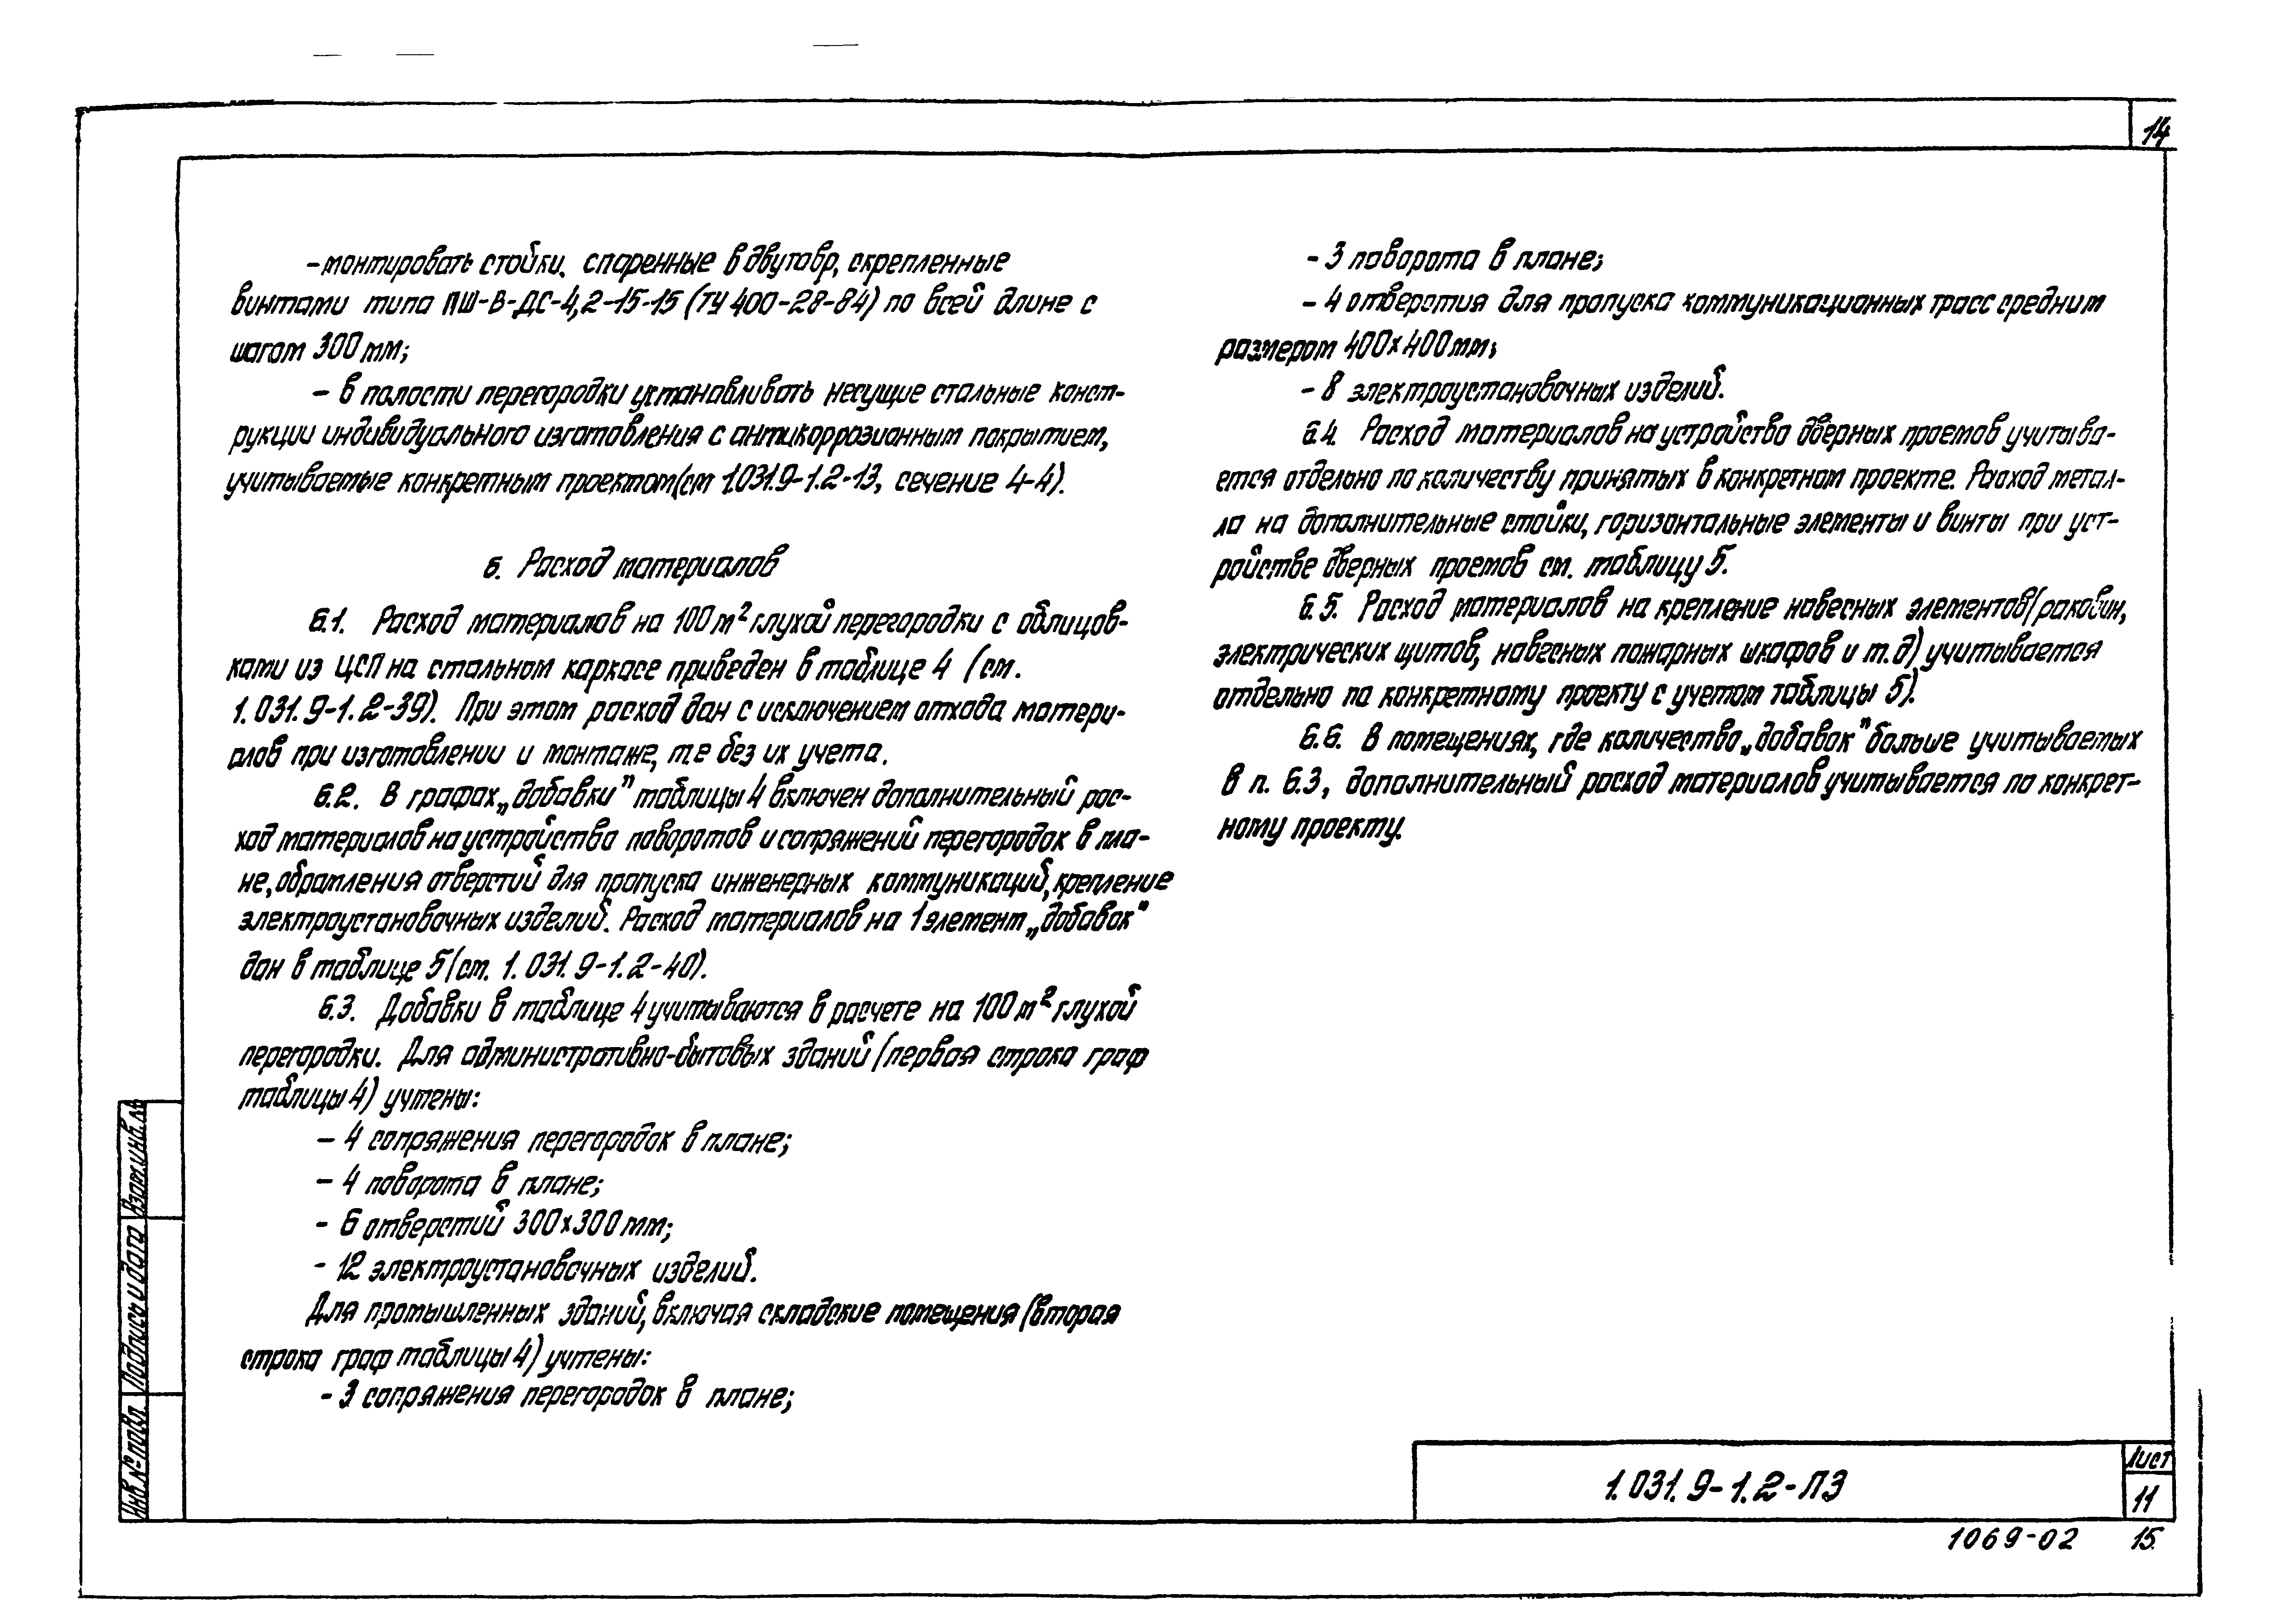 14
- монтировать стойки, спаренные в двутавр, скрепленные
винтами типа ПШ-В-ДС-4,2-15-15 (ТУ 400-28-84) по всей длине с
шагом 300 мм;
- в полости перегородки устанавливать несущие стальные конст-
рукции индивидуального изготовления с антикоррозионным покрытием,
учитываемые конкретным проектом (см 1.031.9-1.2-13, сечение 4-4).
6. Расход материалов
6.1. Расход материалов на 100 м² глухой перегородки с облицов-
ками из ЦСП на стальном каркасе приведен в таблице 4 (см.
1.031.9-1.2-39). При этом расход дан с исключением отхода матери-
алов при изготовлении и монтаже, т.е без их учета.
6.2. В графах „добавки" таблицы 4 включен дополнительный рас-
ход материалов на устройства поворотов и сопряжений перегородок в пла-
не, обрамления отверстий для пропуска инженерных коммуникаций, крепление
электроустановочных изделий. Расход материалов на 1 элемент „добавок"
дан в таблице 5 (см. 1.031.9-1.2-40).
6.3. Добавки в таблице 4 учитываются в расчете на 100 м² глухой
перегородки. Для административно-бытовых зданий (первая строка граф
таблицы 4) учтены:
- 4 сопряжения перегородок в плане;
- 4 поворота в плане;
- 6 отверстий 300х300 мм;
- 12 электроустановочных изделий.
Для промышленных зданий, включая складские помещения (вторая
строка граф таблицы 4) учтены:
- 3 сопряжения перегородок в плане;
- 3 поворота в плане;
- 4 отверстия для пропуска коммуникационных трасс средним
размером 400х400 мм;
- 8 электроустановочных изделий.
6.4. Расход материалов на устройство дверных проемов учитыва-
ется отдельно по количеству принятых в конкретном проекте. Расход метал-
ла на дополнительные стойки, горизонтальные элементы и винты при уст-
ройстве дверных проемов см. таблицу 5.
6.5. Расход материалов на крепление навесных элементов (раковин,
электрических щитов, навесных пожарных шкафов и т.д) учитывается
отдельно по конкретному проекту с учетом таблицы 5).
6.6. В помещениях, где количество „добавок" больше учитываемых
в п. 6.3, дополнительный расход материалов учитывается по конкрет-
ному проекту.
Взам.инв.№
Подпись и дата
Инв.№ подл.
1.031.9-1.2-ПЗ
Лист
11
1069-02 15